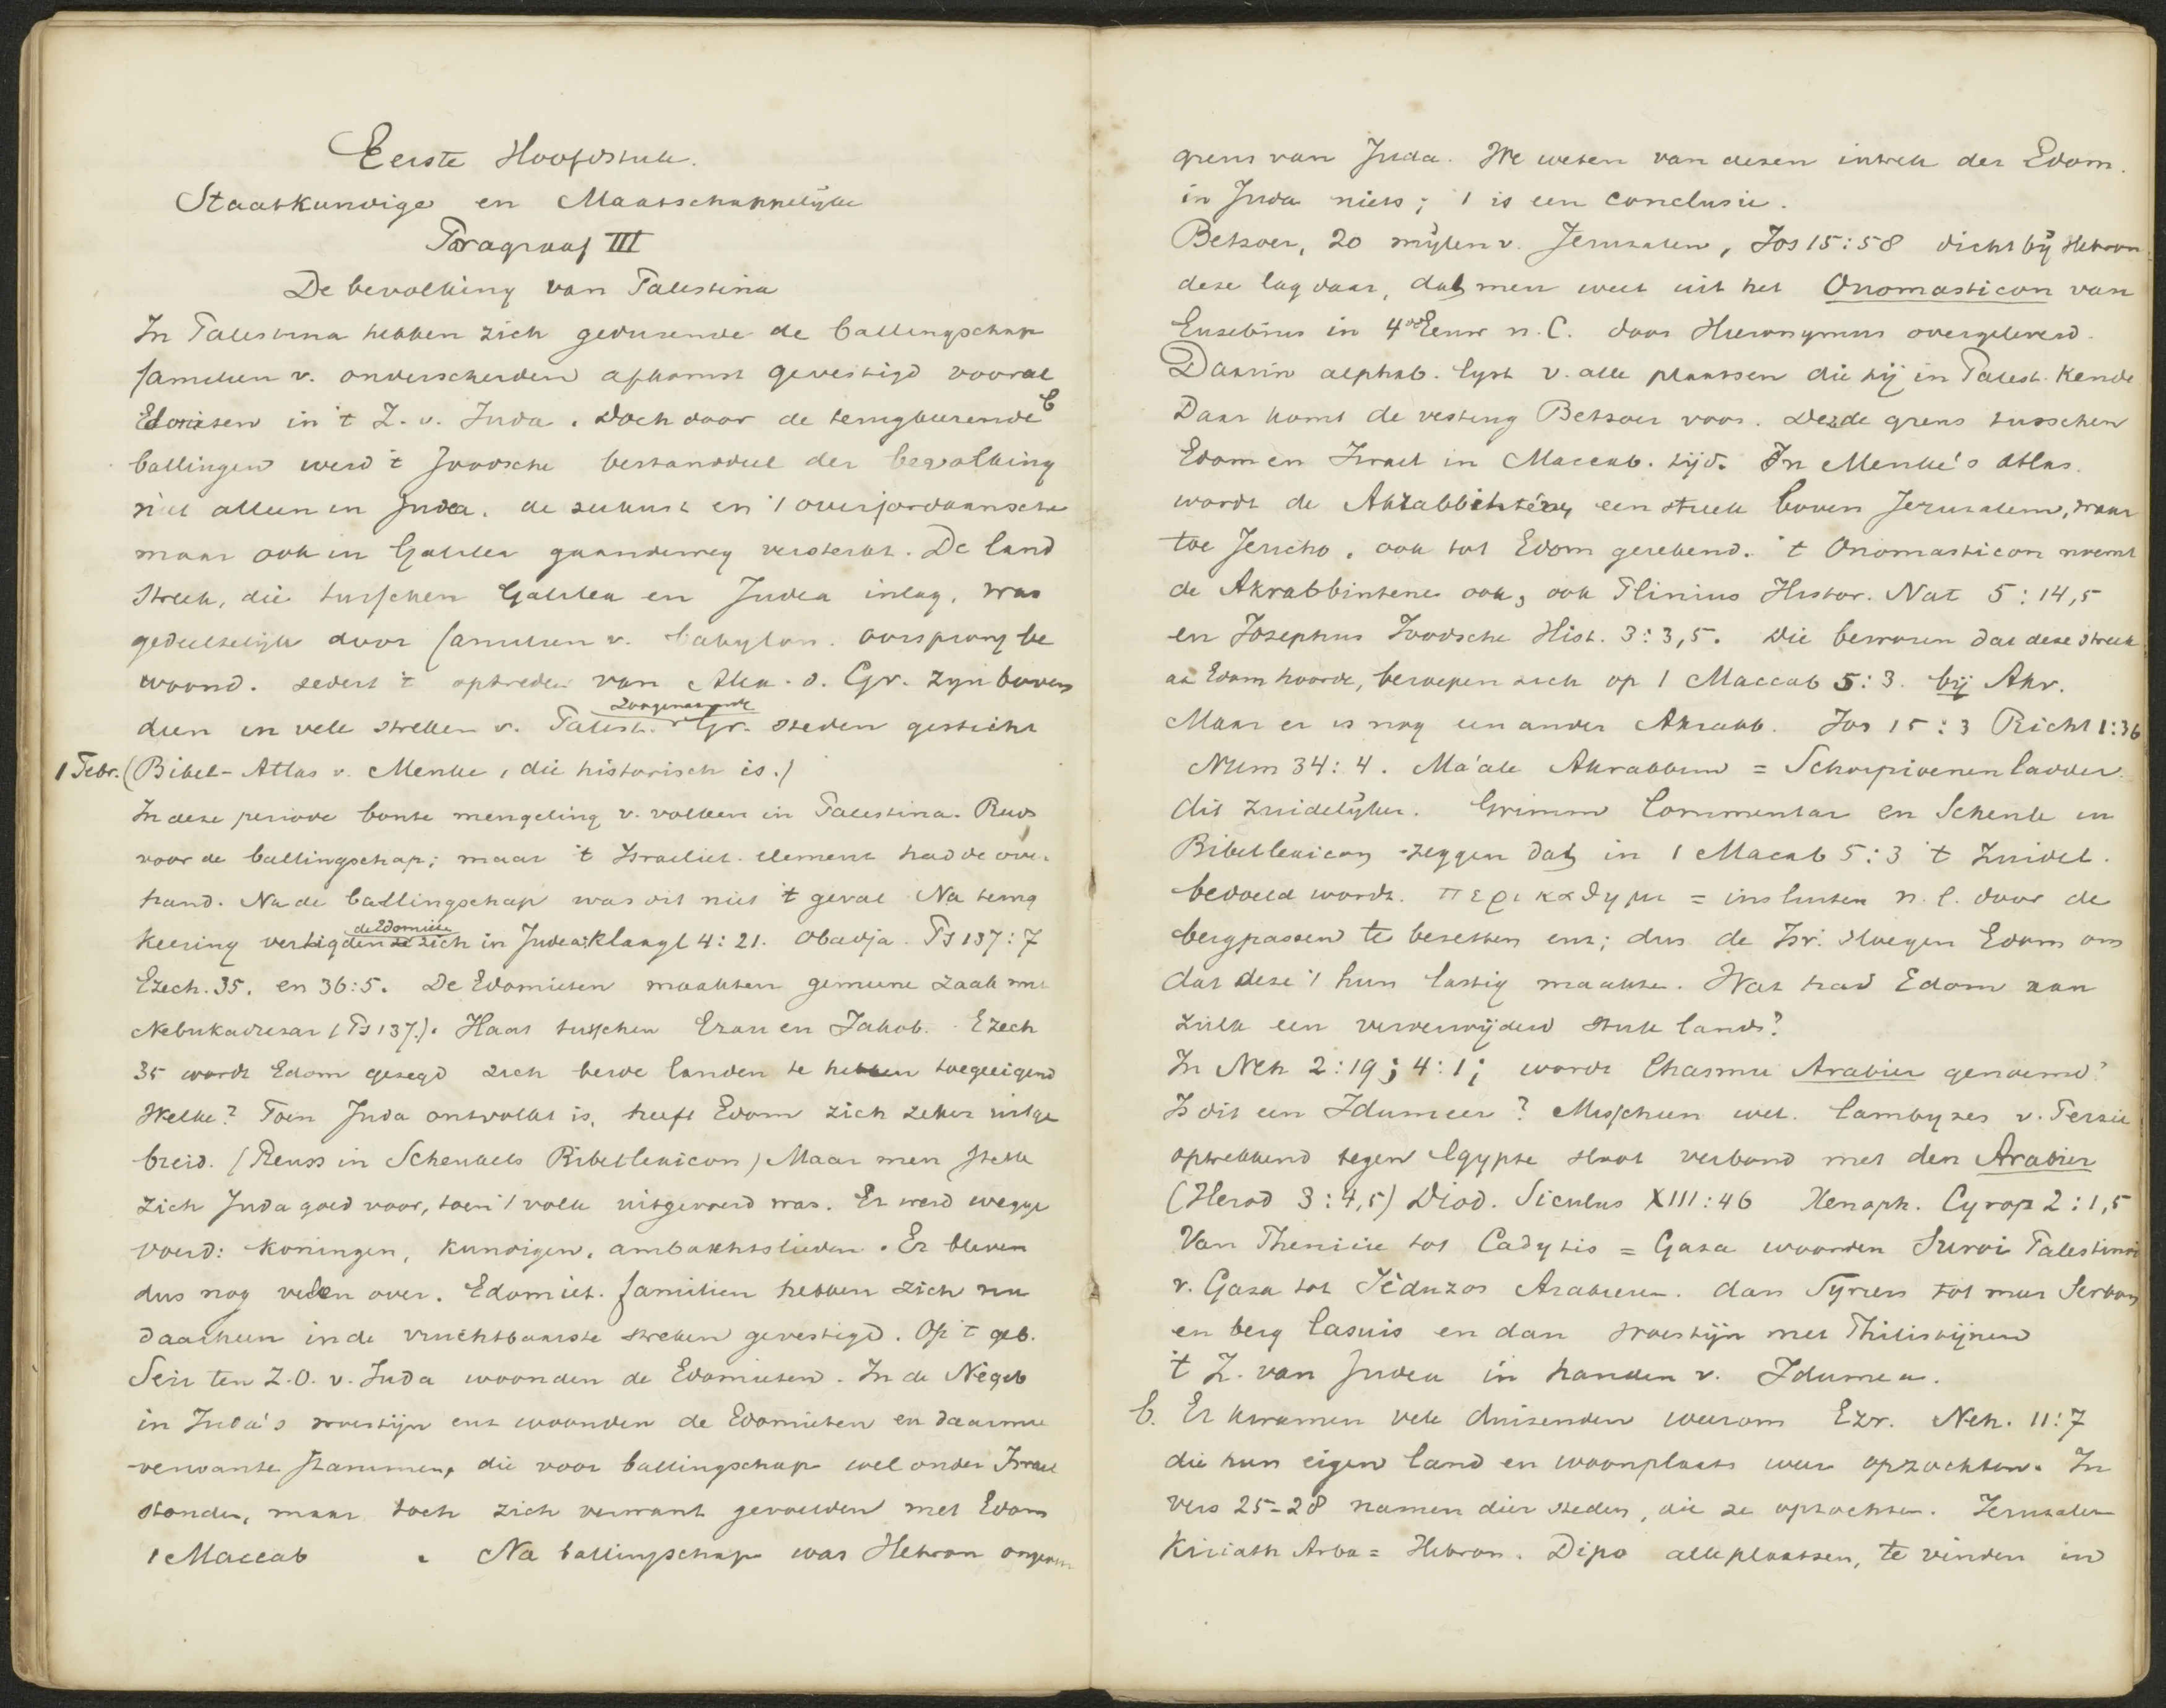 Eerste Hoofdstuk.
Staatkundige en Maatschappelijke
Paragraaf III
De bevolking van Palestina
In Palestina hebben zich gedurende de ballingschap
familien v. onderscheiden afkomst gevestigd vooral
Edomieten in 't Z. v. Juda. Doch door de terugkeerende b
ballingen werd 't Joodsche bestanddeel der bevolking
niet alleen in Judea, de zeekust en 't overjordaansche
maar ook in Galilea gaandeweg versterkt. De land
streek, die tusschen Galilea en Judea inlag, was
gedeeltelijk door familien v. babylon. oorsprong be
woond. sedert 't optreden van Alex. d. Gr. zijn boven
dien in vele streken v. Palest. zoogenaamde Gr. steden gesticht
1 Febr. (Bibel-Atlas v. Menke, die historisch is.)
In deze periode bonte mengeling v. volken in Palestina. Reeds
voor de ballingschap; maar 't Israeliet. element had de over
hand. Na de ballingschap was dit niet 't geval Na terug
keering vestigden de Edomieten zich in Judea: Klaagl 4:21. Obadja. Ps 137:7
Ezech. 35. en 36:5. De Edomieten maakten gemeene zaak met
Nebukadrezar (Ps 137.). Haat tusschen Ezau en Jakob. Ezech
35 wordt Edom gezegd zich beide landen te hebben toegeeigend
Welke? Toen Juda ontvolkt is, heeft Edom zich zeker uitge
breid. (Reuss in Schenkels Bibellexicon) Maar men stelle
zich Juda goed voor, toen 't volk uitgevoerd was. Er werd wegge
voerd: Koningen, kundigen, ambachtslieden. Er bleven
dus nog velen over. Edomiet. familien hebben zich nu
daarheen in de vruchtbaarste streken gevestigd. Op 't geb.
Seir ten Z.O. v. Juda woonden de Edomieten. In de Negeb
in Juda's woestijn enz woonden de Edomieten en daarmee
verwante stammen, die voor ballingschap wel onder Israel
stonden, maar toch zich verwant gevoelden met Edom
1 Maccab . Na ballingschap was Hebron
grens van Juda. We weten van dezen intrek der Edom.
in Juda niets; 't is een conclusie.
Betsoer, 20 mijlen v. Jeruzalem, Jos 15:58 dicht bij Hebron
deze lag daar, dat men weet uit het Onomasticon van
Eusebius in 4de Eeuw n. C. door Hieronymus overgeleverd.
Daarin alphab. lijst v. alle plaatsen die hij in Palest. kende
Daar komt de vesting Betsoer voor. Dezde grens tusschen
Edom en Israel in Maccab. tijd. In Menke's Atlas.
wordt de Akrabbinténe, een streek boven Jeruzalem, waar
toe Jericho, ook tot Edom gerekend. 't Onomasticon noemt
de Akrabbintene ook, ook Plinius Histor. Nat 5:14,5
en Josephus Joodsche Hist. 3:3,5. Die beweren dat deze streek
aa Edom hoorde, beroepen zich op 1 Maccab 5:3. bij Akr.
Maar er is nog een ander Akrabb. Jos 15:3 Richt 1:36
Num 34:4. Ma'ale Akrabbim = Schorpioenenladder.
dit zuidelijker. Grimm Commentar en Schenk in
Bibellexicon zeggen dat in 1 Macab 5:3 't Zuidel.
bedoeld wordt. περικαθημι = insluiten n. l. door de
bergpassen te bezetten enz; dus de Isr. sloegen Edom om
dat deze 't hun lastig maakte. Wat had Edom aan
zulk een ververwijderd stuk lands?
In Neh 2:19; 4:1; wordt Chasmu Arabier genoemd?
Is dit een Idumeer? Misschien wel. Cambyzes v. Perzie
optrekkend tegen Egypte sloot verbond met den Arabier
(Herod 3:4,5) Diod. Siculus XIII:46 Xenoph. Cyrop 2:1,5
Van Phenicie tot Cadytis = Gaza woonden Suroi Palestinoi
v. Gaza tot Jéduzos Arabieren. dan Syriers tot meer Serbon
en berg Casius en dan woestijn met Philistijnen
't Z. van Judea in handen v. Idumea.
b. Er kwamen vele duizenden weerom Ezr. Neh. 11:7
die hun eigen land en woonplaats weer opzochten. In
vers 25-28 namen dier steden, die ze opzochten. Jeruzalem
Kiriath Arba = Hebron. Dipo alle plaatsen, te vinden in